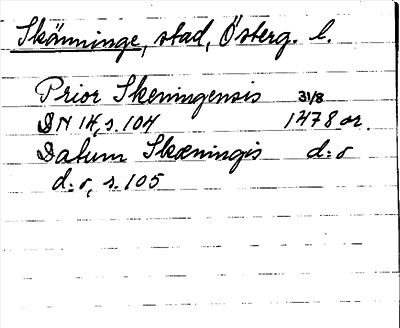 Skänninge, stad, Österg. l.
Prior Skeningensis 31/8
DN 14, s. 104 1478 or.
Datum Skæningis d:o
d:o, s. 105